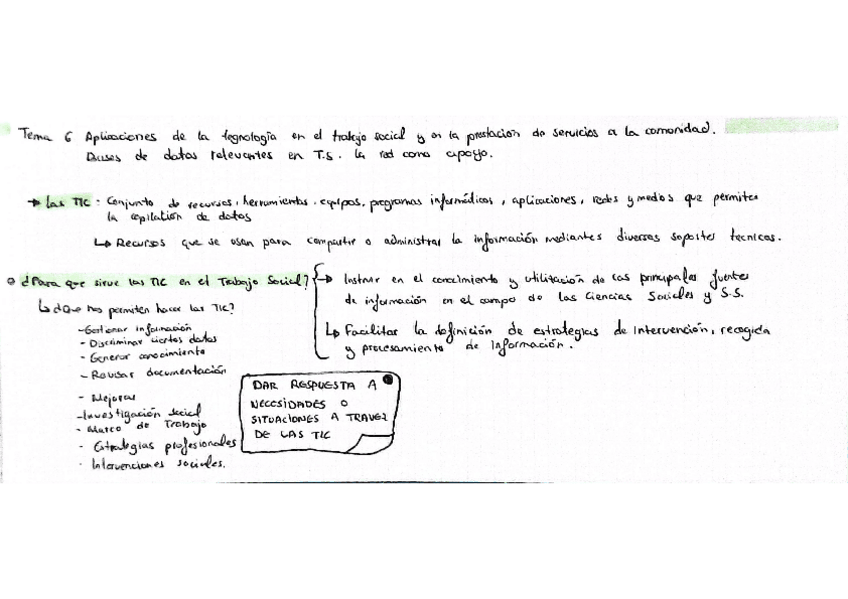 Tema 6 Aplicaciones de la tegnología en el trabajo social y en la prestación de servicios a la comunidad.
Bases de datos relevantes en T.S. la red como apoyo.
→ Las TIC: Conjunto de recursos, herramientas, equipos, programas informáticos, aplicaciones, redes y medios que permiten
la copilation de datos
↳ Recursos que se usan para compartir o administrar la información mediantes diversos soportes tecnicos.
¿Para que sirve las TIC en el Trabajo Social? → Instruir en el conocimiento y utilitación de las principales fuentes
de información en el campo de las Ciencias Sociales y S.S.
↳ Facilitar la definición de estrategias de intervención, recogida
y procesamiento de información.
↳ ¿Que nos permiten hacer las TIC?
- Gestionar información
- Discriminar ciertos datos
- Generar conocimiento
- Revisar documentación
- Mejoras
- Investigación social
- Marco de Trabajo
- Estrategias profesionales
- Intervenciones sociales.
DAR RESPUESTA A
NECESIDADES O
SITUACIONES A TRAVEZ
DE LAS TIC